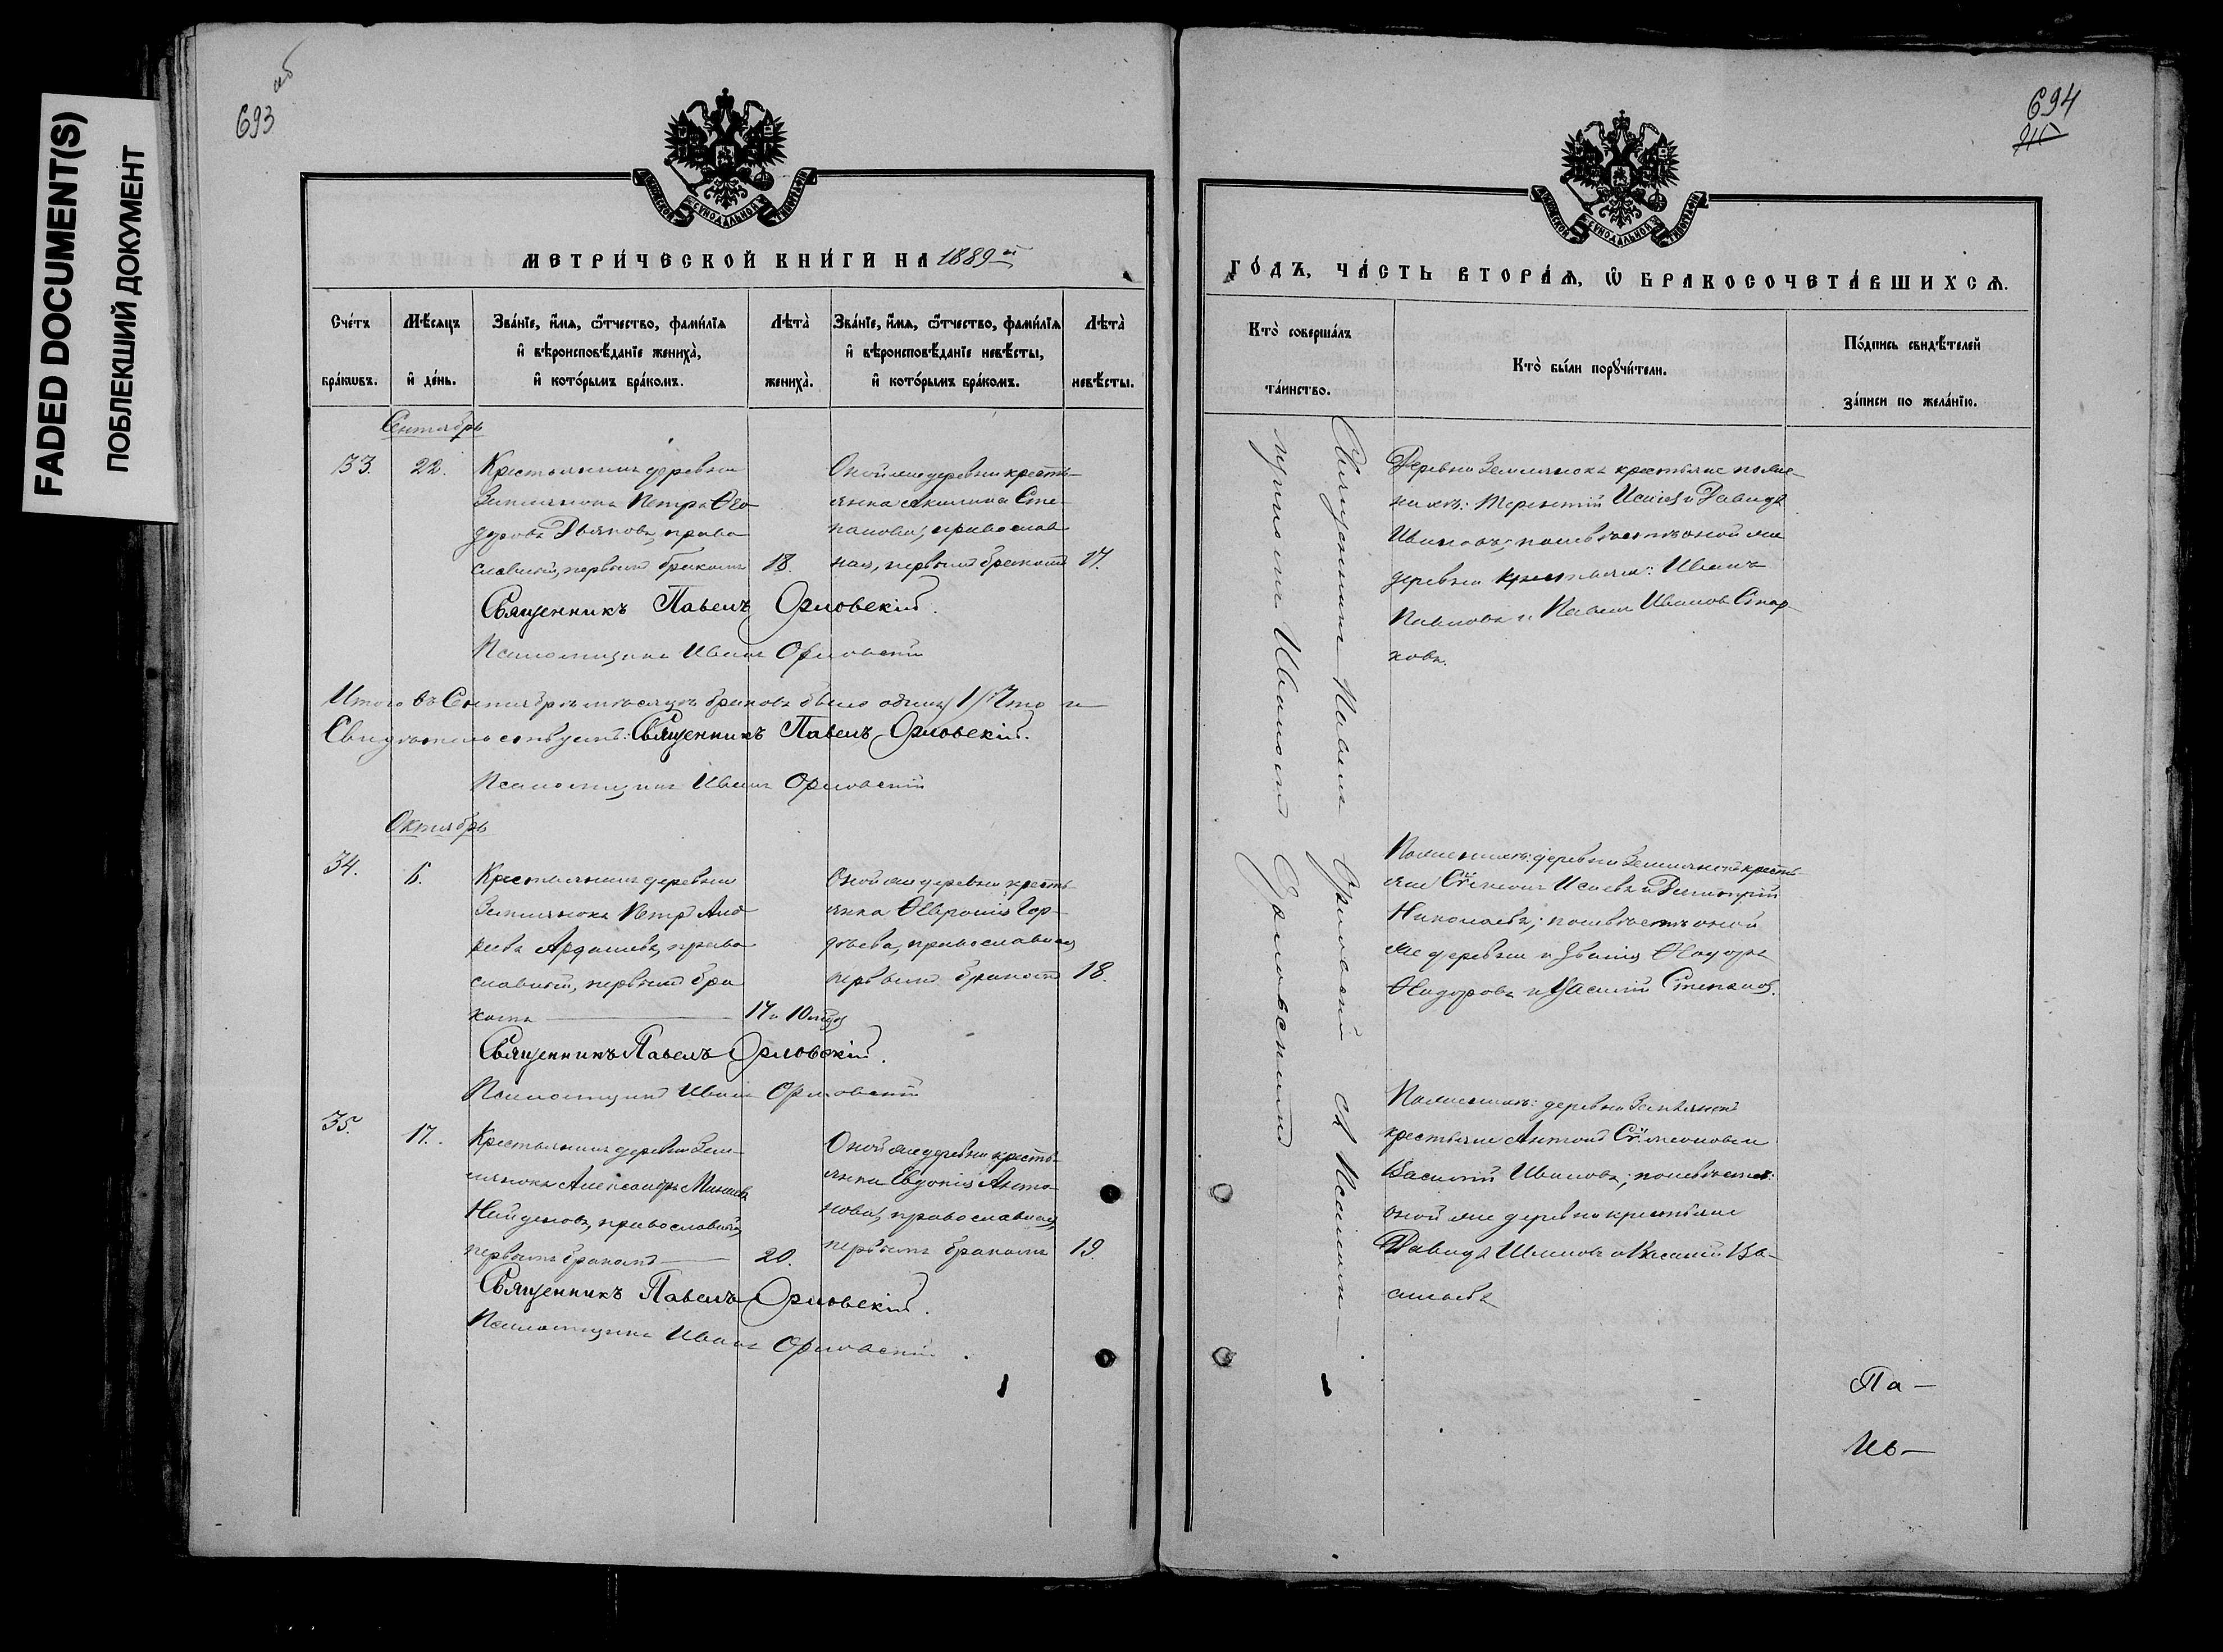 FADED DOCUMENT(S)
ПОБЛЕКШИЙ ДОКУМЕНТ
693
МЕТРИ́ЧЕСКОЙ КНИ́ГИ НА 1889й
Сче́тъ бра́кѡвъ.
Мѣ́сѧцъ и де́нь.
Зва́нїе, и́мѧ, ѻ́тчество, фами́лїѧ
и вѣроисповѣ́данїе жениха̀,
и кото́рымъ бра́комъ.
Лѣта̀ жениха̀.
Зва́нїе, и́мѧ, ѻ́тчество, фами́лїѧ
и вѣроисповѣ́данїе невѣ́сты,
и кото́рымъ бра́комъ.
Лѣта̀ невѣ́сты.
Сентябрь
33. 22.
Крестьянинъ деревни
Землянока Петръ Ѳео
доровъ Дьяковъ, право
славный, первымъ бракомъ 18.
Оной же деревни кресть-
янка Акилина Сте-
панова, православ
ная, первымъ бракомъ 17.
Священникъ Павелъ Орловскій.
Псаломщикъ Иванъ Орловскій
Итого въ Сентябрѣ мѣсяцѣ браковъ было одинъ /1/. Что и
Свидѣтельствуемъ: Священникъ Павелъ Орловскій.
Псаломщикъ Иванъ Орловскій
Октябрь
34. 6.
Крестьянинъ деревни
Землянока Петръ Анд
реевъ Ардашевъ, право
славный, первымъ бра
комъ — 17 и 10 мѣс
Оной же деревни кресть-
янка Февронія Гор-
дѣева, православная
первымъ бракомъ 18.
Священникъ Павелъ Орловскій.
Псаломщикъ Иванъ Орловскій
35. 17.
Крестьянинъ деревни Зем-
лянока Александръ
Найденовъ, православный,
первымъ бракомъ — 20.
Оной же деревни кресть-
янка Евдокія Анто-
нова, православная,
первымъ бракомъ 19.
Священникъ Павелъ Орловскій.
Псаломщикъ Иванъ Орловскій.
694
ГО́ДЪ, ЧА́СТЬ ВТОРА́Ѧ, Ѡ҆ БРАКОСОЧЕТА́ВШИХСѦ.
Кто̀ соверша́лъ та́инство.
Кто̀ бы́ли порꙋчи́тели.
По́дпись свидѣ́телей за́писи по жела́нїю.
Священникъ Павелъ Орловскій съ Псалом-
щикомъ Иваномъ Орловскимъ
Деревни Землянока крестьяне по же-
нихѣ: Терентій Исаевъ и Давидъ
Ивановъ; по невѣстѣ оной же
деревни крестьяне: Иванъ
Павловъ и Павелъ Ивановъ
ковъ.
По женихѣ: деревни Землянокъ кресть
яне Сѵмеонъ Исаевъ и Димитрій
Николаевъ; по невѣстѣ оной
же деревни и званія Ѳеодоръ
Ѳедоровъ и Василій Степановъ.
По женихѣ: деревни Землянокъ
крестьяне Антонъ Сѵмеоновъ и
Василій Ивановъ; по невѣстѣ:
оной же деревни крестьяне
Давидъ и Василій Ва-
сильевъ
Па—
Ив—